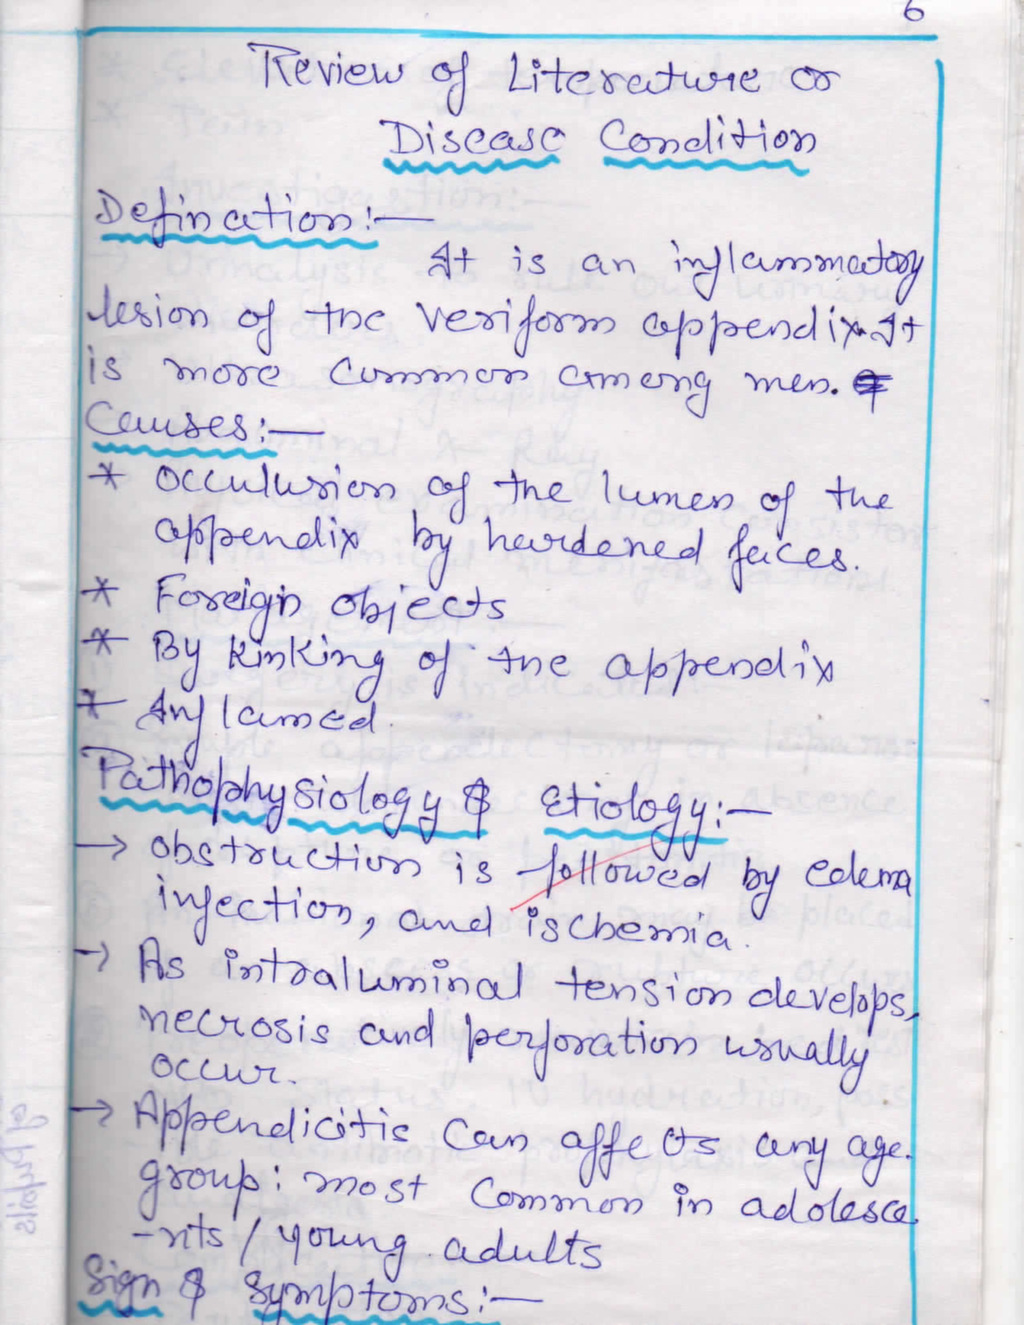 6
Review of Literature or
Disease Condition
Defination:—
It is an inflammatory
lesion of the veriform appendix. It
is more common among men.
Causes:—
* Occulusion of the lumen of the
appendix by hardened feces.
* Foreign objects
* By kinking of the appendix
* Inflamed.
Pathophysiology & Etiology:—
→ obstruction is followed by edema
infection, and ischemia.
→ As intraluminal tension develops,
necrosis and perforation usually
occur.
→ Appendicitis can affects any age.
group: most common in adolesce
-nts / young adults
Sign & Symptoms:—